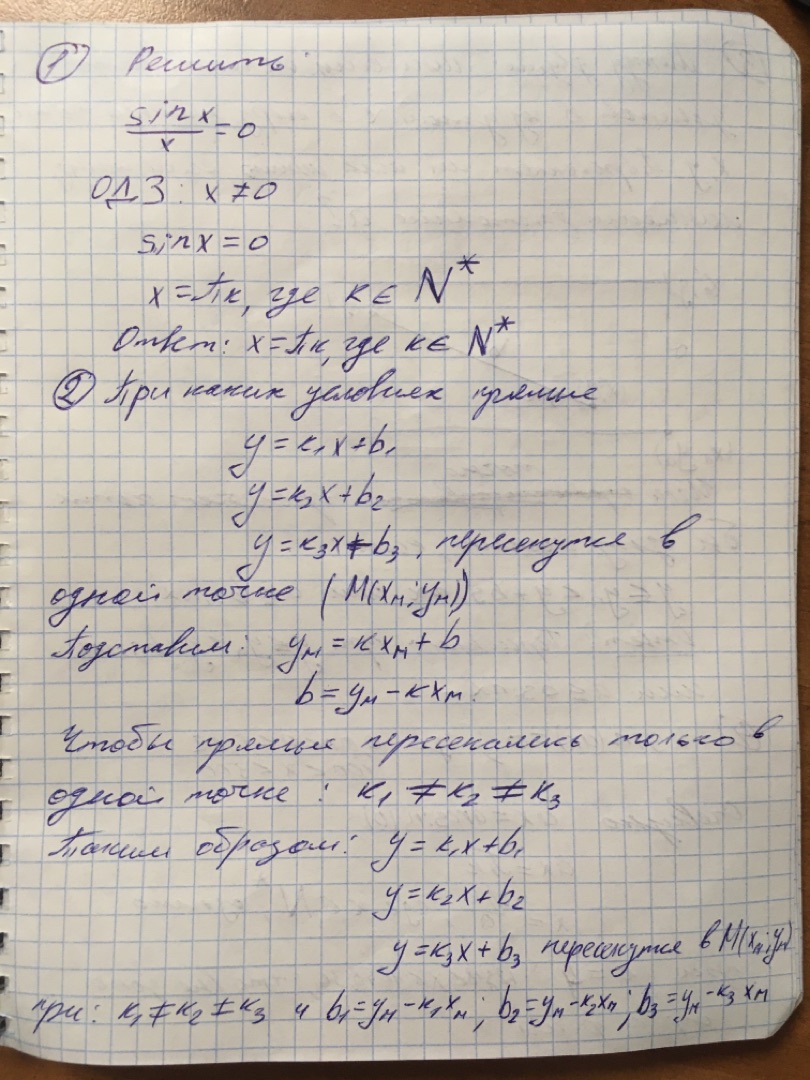 ① Решить:
sin x / x = 0
ОДЗ: x ≠ 0
sin x = 0
x = πк, где к ∈ N*
Ответ: x = πк, где к ∈ N*
② При каких условиях прямые
y = к₁x + b₁
y = к₂x + b₂
y = к₃x + b₃, пересекутся в
одной точке (M(xₘ; yₘ))
Подставим: yₘ = кxₘ + b
b = yₘ - кxₘ.
Чтобы прямые пересекались только в
одной точке: к₁ ≠ к₂ ≠ к₃
Таким образом: y = к₁x + b₁
y = к₂x + b₂
y = к₃x + b₃ пересекутся в M(xₘ; yₘ)
при: к₁ ≠ к₂ ≠ к₃ и b₁ = yₘ - к₁xₘ; b₂ = yₘ - к₂xₘ; b₃ = yₘ - к₃xₘ